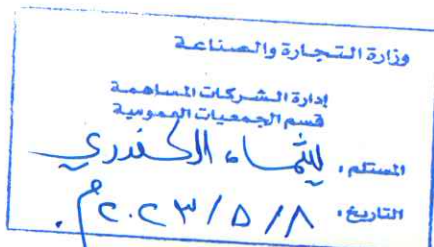 وزارة التجارة والصناعة
إدارة الشركات المساهمة
قسم الجمعيات العمومية
المستلم :
التاريخ : ٢٠٢٣/٥/٨م.